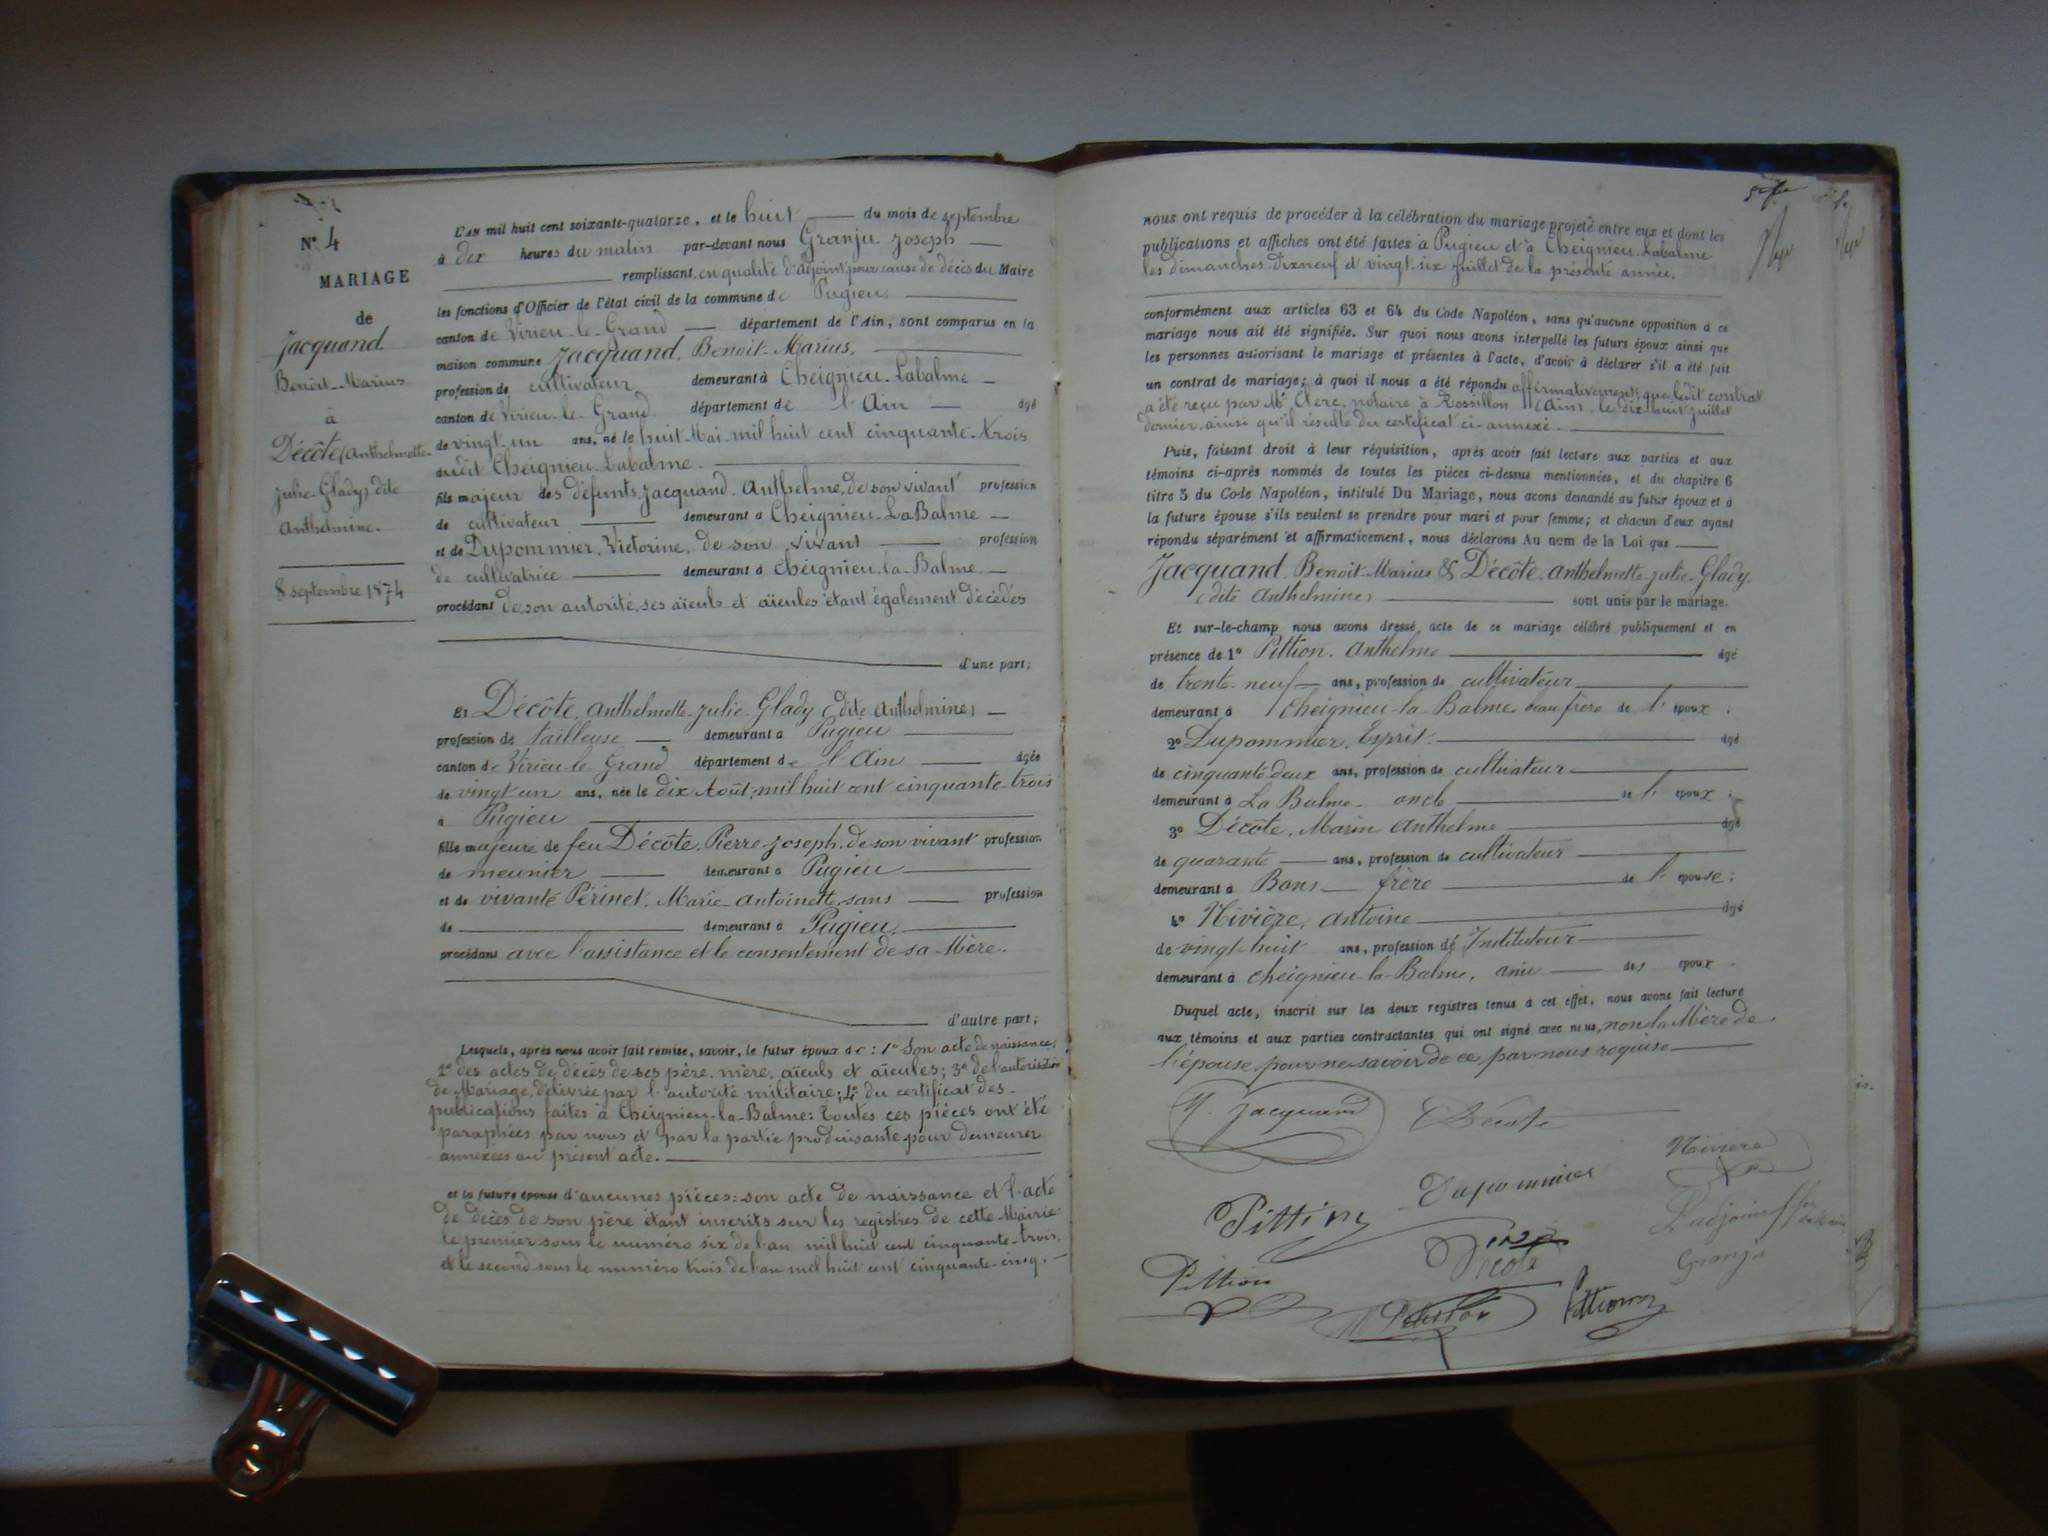 N° 4
MARIAGE
de
Jacquand.
Benoit-Marius
à
Décôte (Anthelmette-
julie-Glady) dite
Anthelmine.
8 septembre 1874
L'AN mil huit cent soixante-quatorze, et le huit du mois de septembre
à dix heures du matin par-devant nous Granju Joseph
remplissant, en qualité d'adjoint, pour cause de décès du Maire
les fonctions d'Officier de l'état civil de la commune de Pugieu
canton de Virieu-le-Grand département de l'Ain, sont comparus en la
maison commune Jacquand, Benoit-Marius,
profession de cultivateur demeurant à Cheignieu-Labalme
canton de Virieu-le-Grand département de l'Ain âgé
de vingt-un ans, né le huit Mai mil huit cent cinquante-trois
audit Cheignieu-Labalme.
fils majeur des défunts, Jacquand Anthelme, de son vivant profession
de cultivateur demeurant à Cheignieu-LaBalme
et de Dupommier, Victorine, de son vivant profession
de cultivatrice demeurant à Cheignieu-la-Balme
procédant de son autorité, ses aïeuls et aïeules étant également décédés
d'une part;
Et Décôte, Anthelmette-julie-Glady (dite Anthelmine)
profession de tailleuse demeurant à Pugieu
canton de Virieu-le Grand département de l'Ain âgée
de vingt-un ans, née le dix Août, mil huit cent cinquante-trois
à Pugieu
fille majeure de feu Décôte, Pierre-Joseph, de son vivant profession
de meunier demeurant à Pugieu
et de vivante Périnet, Marie-Antoinette, sans profession
de demeurant à Pugieu,
procédant avec l'assistance et le consentement de sa Mère.
d'autre part;
Lesquels, après nous avoir fait remise, savoir, le futur époux de: 1° Son acte de naissance;
2° des actes de décès de ses père, mère, aïeuls et aïeules; 3° de l'autorisation
de Mariage, délivrée par l'autorité militaire; 4° du certificat des
publications faites à Cheignieu-la-Balme: Toutes ces pièces ont été
paraphées par nous et par la partie produisante pour demeurer
annexées au présent acte.
et la future épouse d'aucunes pièces: son acte de naissance et l'acte
de décès de son père étant inscrits sur les registres de cette Mairie:
le premier sous le numéro six de l'an mil huit cent cinquante-trois,
et le second sous le numéro trois de l'an mil huit cent cinquante-cinq.
nous ont requis de procéder à la célébration du mariage projeté entre eux et dont les
publications et affiches ont été faites à Pugieu et à Cheignieu Labalme
les dimanches dix neuf et vingt-six juillet de la présente année,
conformément aux articles 63 et 64 du Code Napoléon, sans qu'aucune opposition à ce
mariage nous ait été signifiée. Sur quoi nous avons interpellé les futurs époux ainsi que
les personnes autorisant le mariage et présentes à l'acte, d'avoir à déclarer s'il a été fait
un contrat de mariage; à quoi il nous a été répondu affirmativement, que ledit contrat
a été reçu par Me Clerc, notaire à Rossillon (Ain), le dix huit juillet
dernier, ainsi qu'il résulte du certificat ci-annexé.
Puis, faisant droit à leur réquisition, après avoir fait lecture aux parties et aux
témoins ci-après nommés de toutes les pièces ci-dessus mentionnées, et du chapitre 6
titre 5 du Code Napoléon, intitulé Du Mariage, nous avons demandé au futur époux et à
la future épouse s'ils veulent se prendre pour mari et pour femme; et chacun d'eux ayant
répondu séparément et affirmativement, nous déclarons Au nom de la Loi que
Jacquand, Benoit-Marius & Décôte, Anthelmette-julie-Glady,
(dite Anthelmine) sont unis par le mariage.
Et sur-le-champ nous avons dressé acte de ce mariage célébré publiquement et en
présence de 1° Pittion, Anthelme âgé
de trente-neuf ans, profession de cultivateur
demeurant à Cheignieu-la Balme, beau frère de l'époux;
2° Dupommier, Esprit âgé
de cinquante-deux ans, profession de cultivateur
demeurant à La Balme - oncle de l'époux;
3° Décôte, Marin Anthelme âgé
de quarante ans, profession de cultivateur
demeurant à Bons frère de l'épouse;
4° Nivière, Antoine âgé
de vingt-huit ans, profession d'Instituteur
demeurant à Cheignieu-la-Balme, ami des époux.
Duquel acte, inscrit sur les deux registres tenus à cet effet, nous avons fait lecture
aux témoins et aux parties contractantes qui ont signé avec nous, non la Mère de
l'épouse, pour ne savoir de ce par nous requise
M. Jacquand
Décote
Nivière
Dupommier
Pittion
L'adjoint
Décote
Granju
Pittion
Pittion